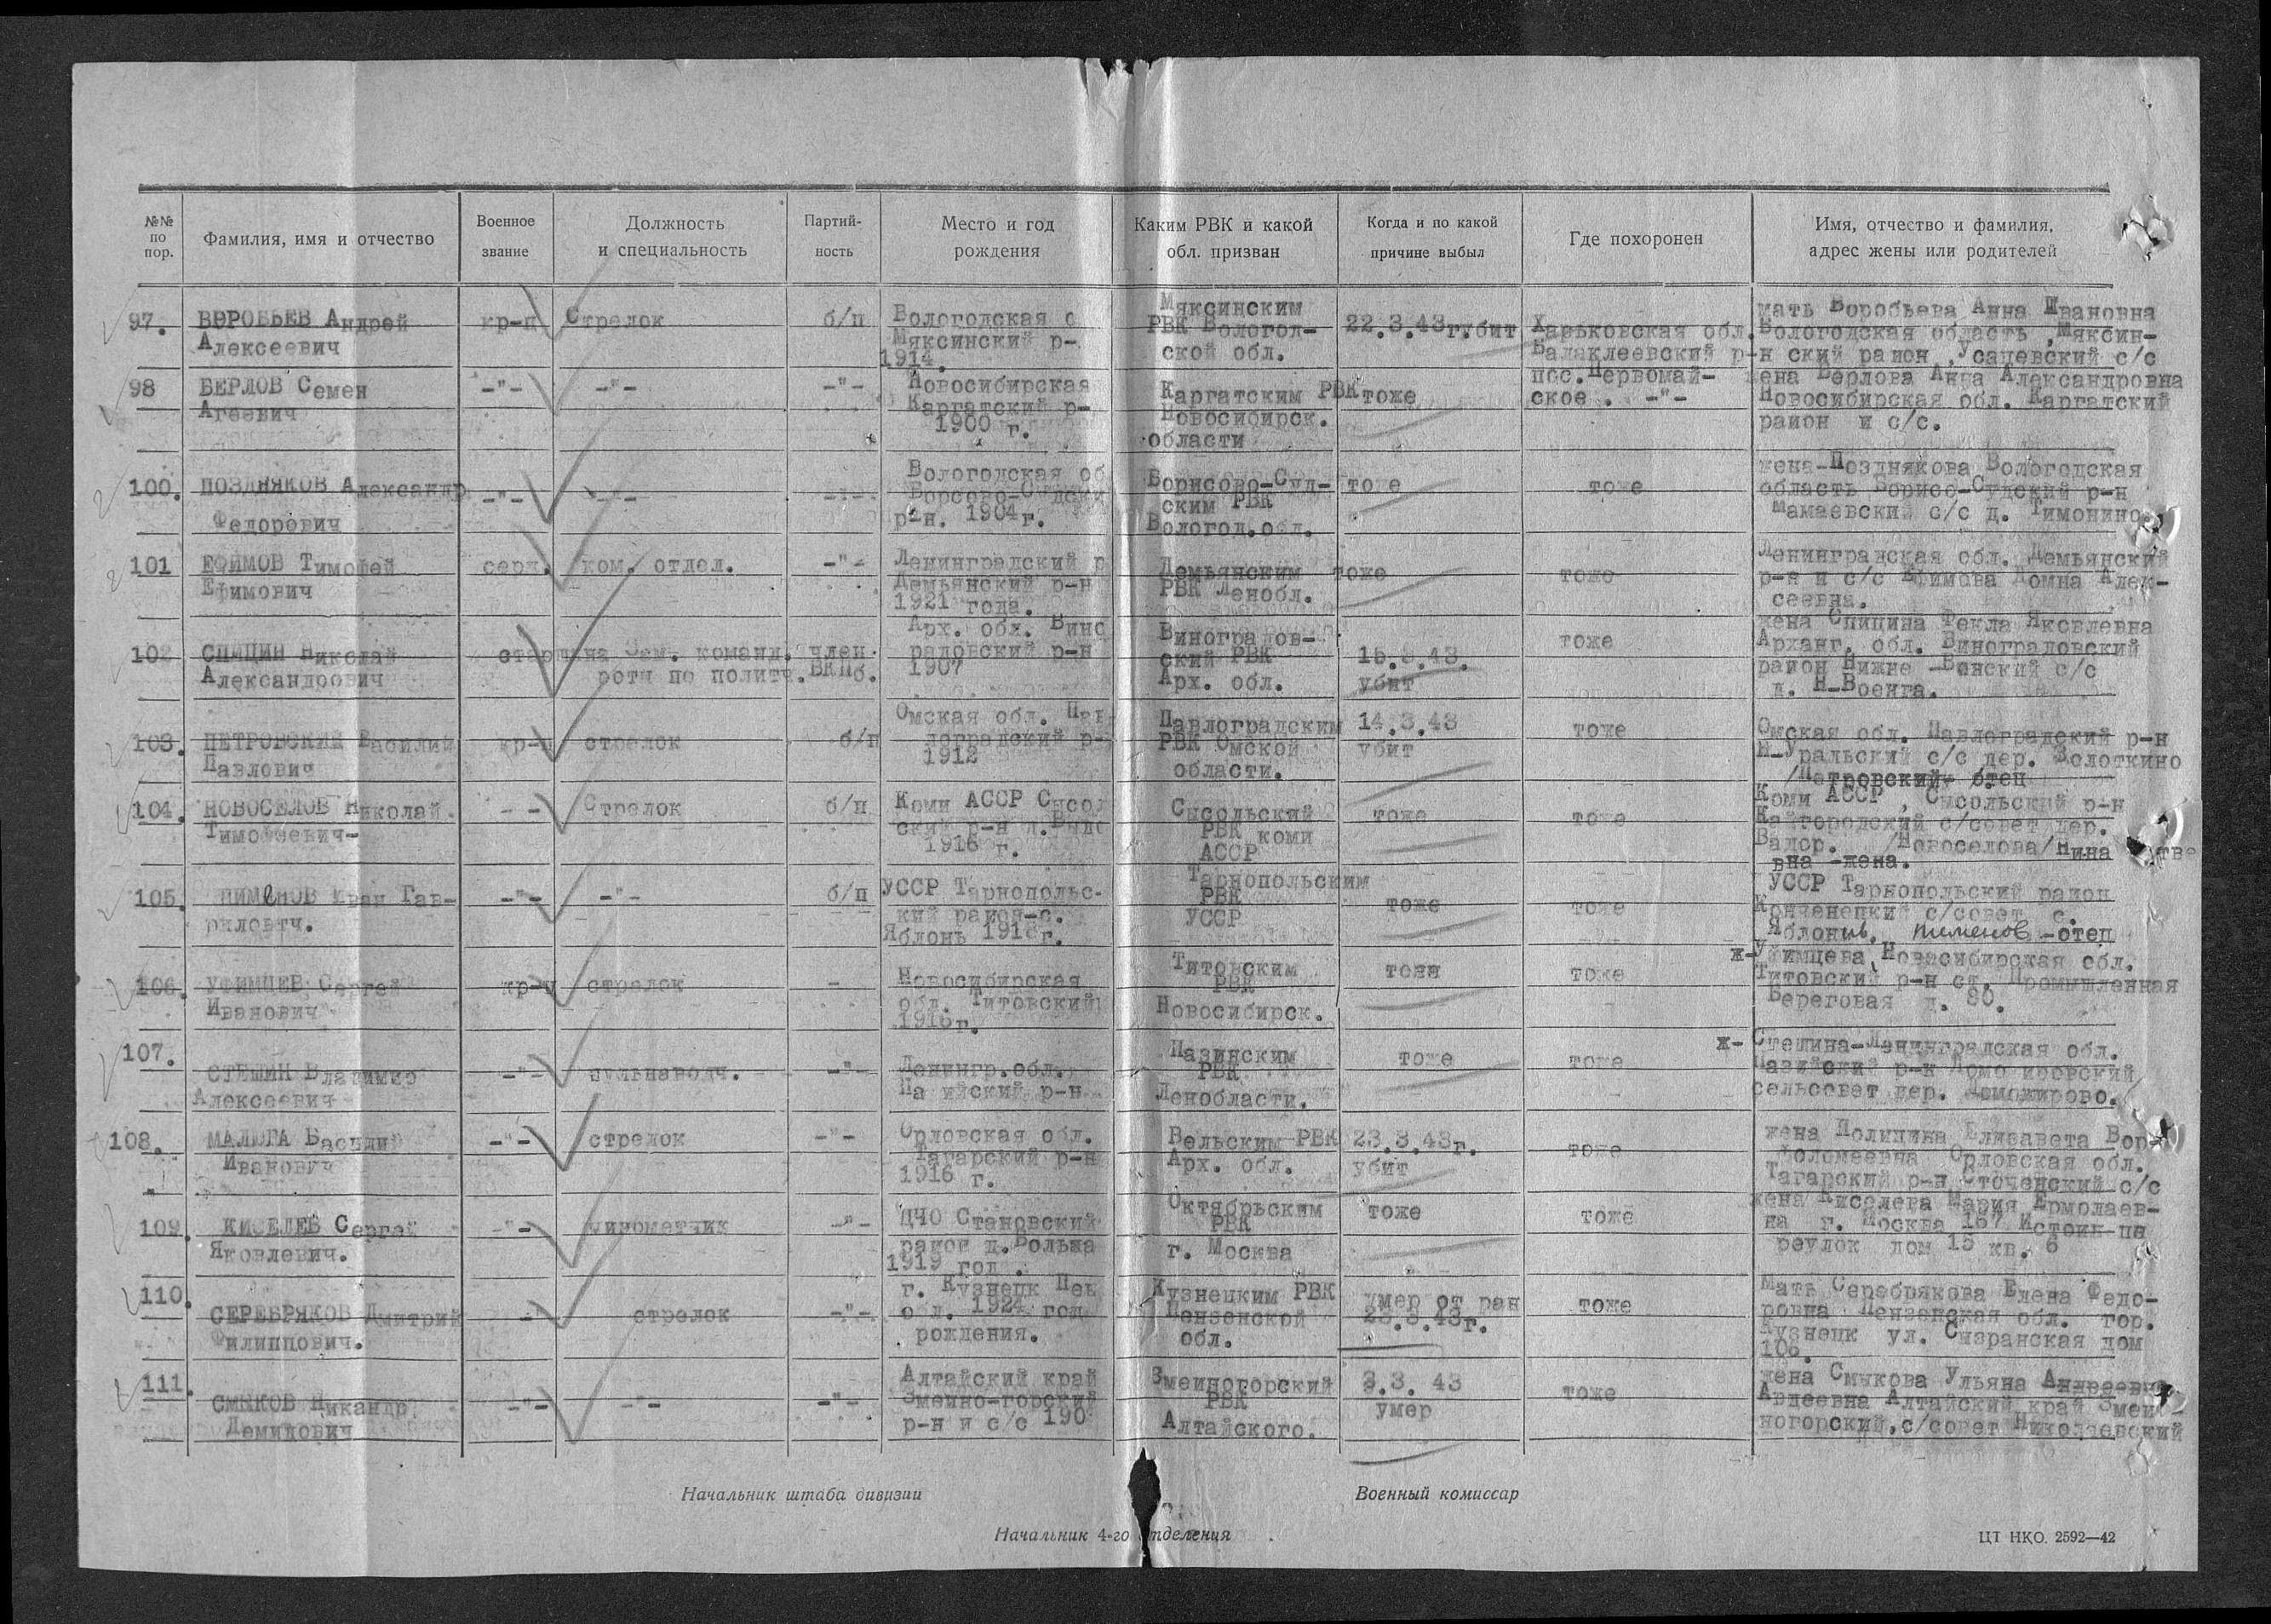 №№ по пор.
Фамилия, имя и отчество
Военное звание
Должность и специальность
Партий- ность
Место и год рождения
Каким РВК и какой обл. призван
Когда и по какой причине выбыл
Где похоронен
Имя, отчество и фамилия, адрес жены или родителей
97. ВОРОБЬЕВ Андрей
Алексеевич
кр-ц
Стрелок
б/п
Вологодская о
Мяксинский р-
1914.
Мяксинским
РВК Вологод-
ской обл.
22.3.43г.убит
Харьковская обл.
Балаклеевский р-н
пос. Первомай-
ское. -"-
мать Воробьева Анна Ивановна
Вологодская область, Мяксин-
ский район, Усачевский с/с
98 БЕРЛОВ Семен
Агеевич
-"-
-"-
-"-
Новосибирская
Каргатский р-
1900 г.
Каргатским РВК
Новосибирск.
области
тоже
жена Берлова Анна Александровна
Новосибирская обл. Каргатский
район и с/с.
100. ПОЗДНЯКОВ Александр
Федорович
-"-
-"-
-"-
Вологодская об
р-н. 1904г.
Борисово-Суд-
ским РВК
Вологод.обл.
тоже
тоже
жена-Позднякова Вологодская
область Борисо-Судский р-н
с/с д. Тимонино
101 ЕФИМОВ Тимофей
Ефимович
серж.
ком. отдел.
-"-
Ленинградский р
Демьянский р-н
1921 года.
Демьянским
РВК Ленобл.
тоже
тоже
Ленинградская обл. Демьянский
р-н и с/с Ефимова Домна Алек-
сеевна.
102 СПИЦИН Николай
Александрович
старшина
Зам. команд.
роты по политч.
член
ВКПб.
Арх. обл. Вино
радовский р-н
1907
Виноградов-
ский РВК
Арх. обл.
убит
тоже
жена Спицина Фекла Яковлевна
Арханг. обл. Виноградовский
район Нижне - с/с
д. Н-Военга.
103. ПЕТРОВСКИЙ Василий
Павлович
кр-ц
стрелок
б/п
Омская обл. Пав
лоградский р-
1912
Павлоградским
РВК Омской
области.
14.3.43
убит
тоже
Омская обл. Павлоградский р-н
Н-Уральский с/с дер. Золоткино
/Петровский- отец
104. НОВОСЕЛОВ Николай
Тимофеевич-
- -
Стрелок
б/п
Коми АССР Сысол
1916 г.
Сысольский
РВК коми
АССР
тоже
тоже
Коми АССР, Сысольский р-н
Кайгородский с/совет дер.
Вадор. /Новоселова/Нина
вна -жена.
105. ПИМЕНОВ Иван Гав-
риловтч.
-"-
-"-
б/п
УССР Тарнопольс-
кий район-с.
Яблонь 1918г.
Тарнопольским
РВК
УССР
тоже
тоже
УССР Тарнопольский район
с/совет с.
Яблонь, Пименов -отец
106. УФИМЦЕВ Сергей
Иванович
кр-ц
стрелок
-
Новосибирская
обл. Титовский
1918г.
Титовским
РВК
Новосибирск.
тоже
тоже
ж-Уфимцева, Новосибирская обл.
Титовский р-н ст. Промышленная
Береговая д. 80.
107.
СТЕШИН Владимир
Алексеевич
-"-
пульнаводч.
-"-
Ленингр.обл.
Па ийский р-н
РВК
Ленобласти.
тоже
тоже
ж- Стешина-Ленинградская обл.
сельсовет дер. Доможирово.
108. МАЛЮГА Василий
Иванович
-"-
стрелок
-"-
Орловская обл.
Тагарский р-н
1916 г.
Вельским РВК
Арх. обл.
23.3.43г.
убит
тоже
жена Полицина Елизавета Вор-
фоломеевна Орловская обл.
Тагарский р-н с/с
109. КИСЕЛЕВ Сергей
Яковлевич.
-"-
минометчик
-"-
ЦЧО Становский
район д.
1919 год.
Октябрьским
РВК
г. Москва
тоже
тоже
жена Киселева Мария Ермолаев-
на г. Москва 167 пе
реулок дом 15 кв. 6
110.
СЕРЕБРЯКОВ Дмитрий
Филиппович.
-
стрелок
-"-
г. Кузнецк Пен
обл. 1924 год
рождения.
Кузнецким РВК
Пензенской
обл.
умер от ран
23.3.43г.
тоже
Мать Серебрякова Елена Федо-
ровна Пензенская обл. гор.
Кузнецк ул. Сызранская дом
106.
111.
СМЫКОВ Никандр
Демидович
-"-
-"-
-"-
Алтайский край
Змеино-горский
р-н и с/с 190
Змеиногорский
РВК
Алтайского.
3.3. 43
умер
тоже
жена Смыкова Ульяна
Авдеевна Алтайский край Змеи-
ногорский, с/совет Николаевский
Начальник штаба дивизии
Военный комиссар
Начальник 4-го отделения
ЦТ НКО. 2592—42